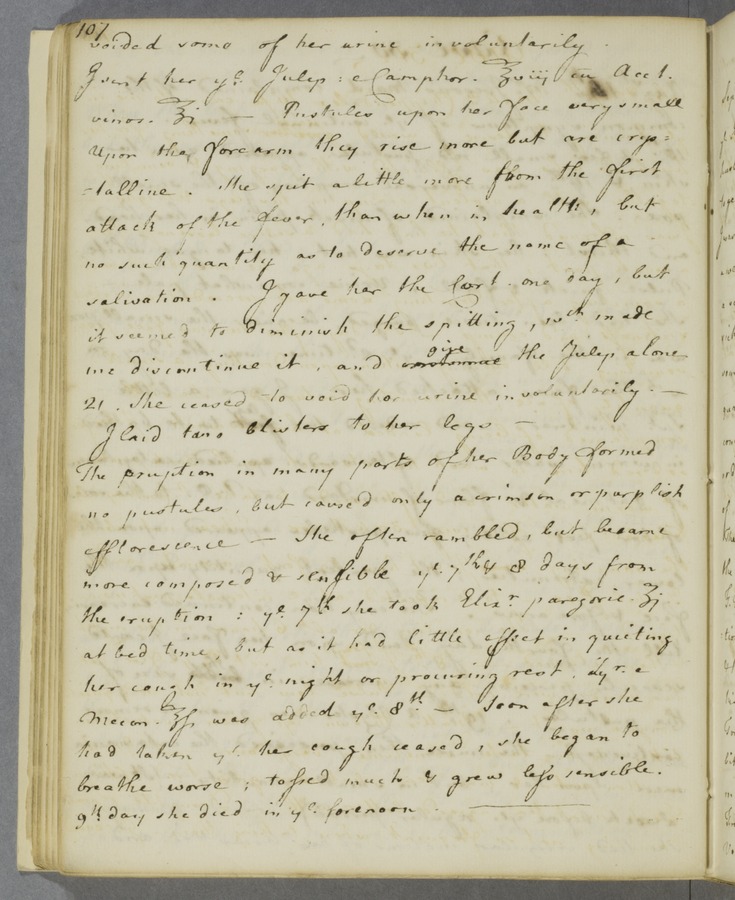 107
voided some of her urine involuntarily.
I sent her ye. Julep: e Camphor. ℥viij cu Acet.
vinos. ℥i — Pustules upon her face very small
Upon the forearm they rise more but are crys=
=talline. She spit a little more from the first
attack of the fever, than when in health, but
no such quantity as to deserve the name of a
salivation. I gave her the Cort. one day, but
it seemed to diminish the spitting, wch made
me discontinue it, and give the Julep alone
21. She ceased to void her urine involuntarily. —
I laid two blisters to her legs —
The eruption in many parts of her Body formed
no pustules, but caused only a crimson or purplish
efflorescence — She often rambled, but became
more composed & sensible ye. 7th & 8 days from
the eruption: ye. 7th she took Elixr. paregoric. ʒj
at bed time, but as it had little effect in quieting
her cough in ye. night or procuring rest, Syr. e
Mecon. ℥ſs was added ye. 8th — Soon after she
had taken yt. her cough ceased, she began to
breathe worse; tossed much & grew less sensible.
9th day she died in ye. forenoon.